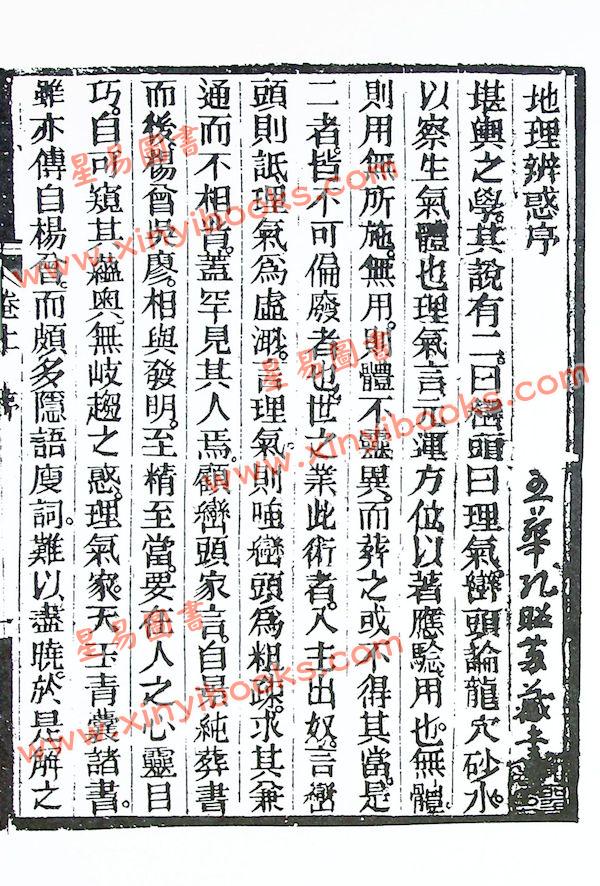 地理辨惑序
堪輿之學。其說有二。曰巒頭曰理氣。巒頭論龍穴砂水。
以察生氣體也理氣言元運方位以著應驗。用也。無體。
則用無所施。無用。則體不靈異。而葬之或不得其當。是
二者。皆不可偏廢者也。世之業此術者。入主出奴。言巒
頭則詆理氣爲虛渺。言理氣。則嗤巒頭爲粗跡。求其兼
通而不相背。蓋罕見其人焉。顧巒頭家言。自景純葬書
而後。楊曾吳廖。相與發明。至精至當。要在人之心靈目
巧。自可窺其蘊奧無岐趨之惑。理氣家。天玉青囊諸書。
雖亦傳自楊曾。而頗多隱語廋詞。難以盡曉。於是解之
卷上 序
星易圖書
www.xinyibooks.com
星易圖書
www.xinyibooks.com
星易圖書
www.xinyibooks.com